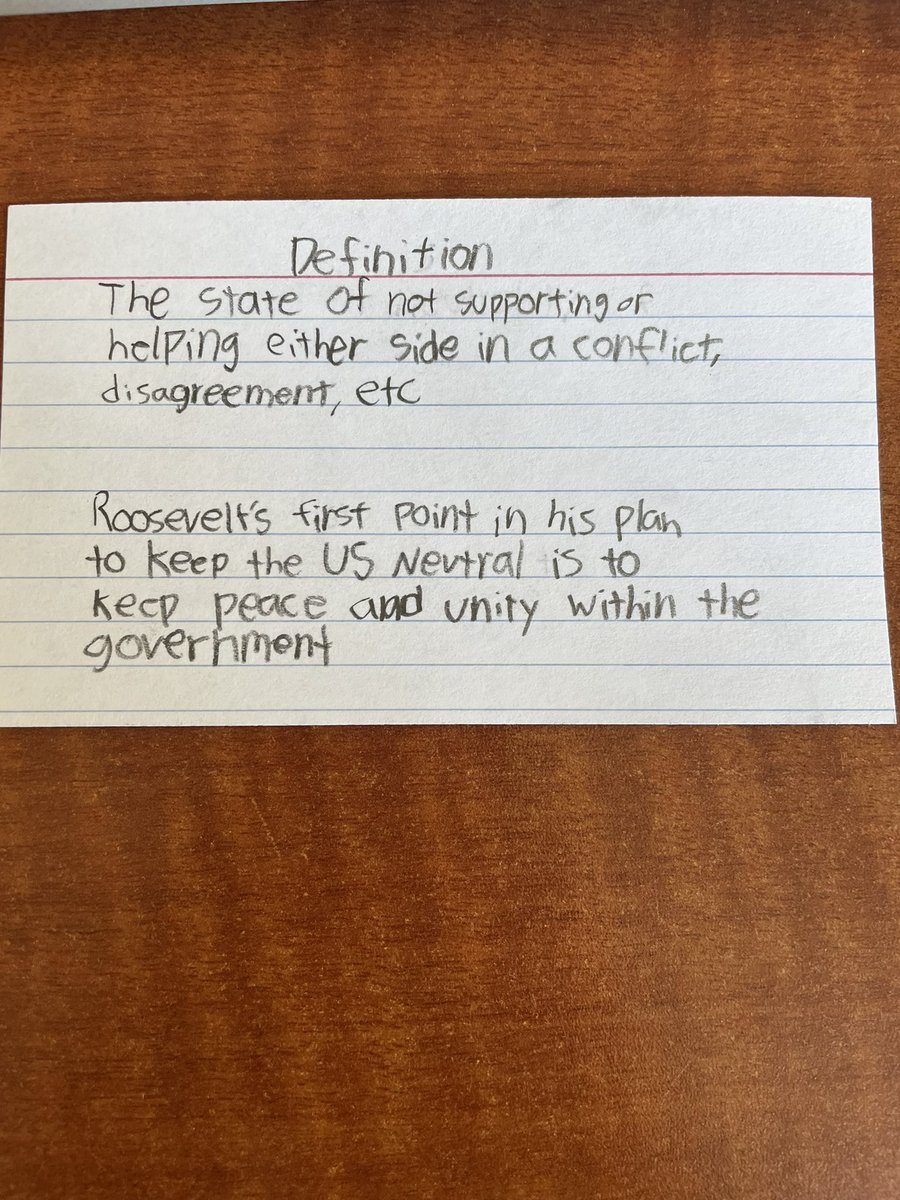 Definition
The state of not supporting or
helping either side in a conflict,
disagreement, etc
Roosevelt's first point in his plan
to keep the US Neutral is to
keep peace and unity within the
government